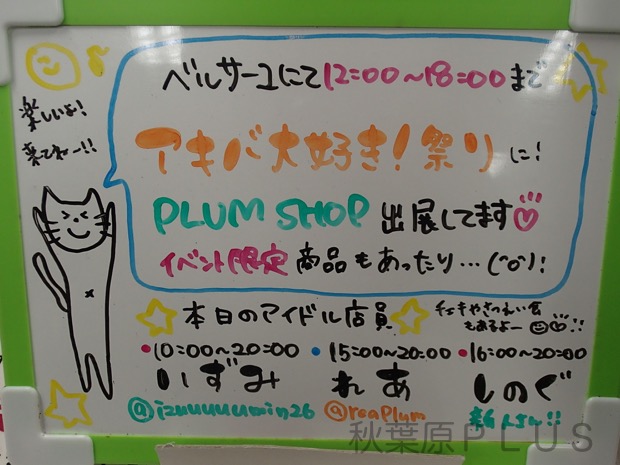 ベルサール1にて12:00〜18:00まで
アキバ大好き!祭りに!
PLUM SHOP 出展してます
イベント限定 商品もあったり…(^o^)!
楽しいよ!
来てねー!!
本日のアイドル店員
チェキやさつえい会
もあるよー
10:00〜20:00
いずみ
@izuuuuumin26
15:00〜20:00
れあ
@reaplum
16:00〜20:00
しのぐ
新人さん!!
秋葉原PLUS